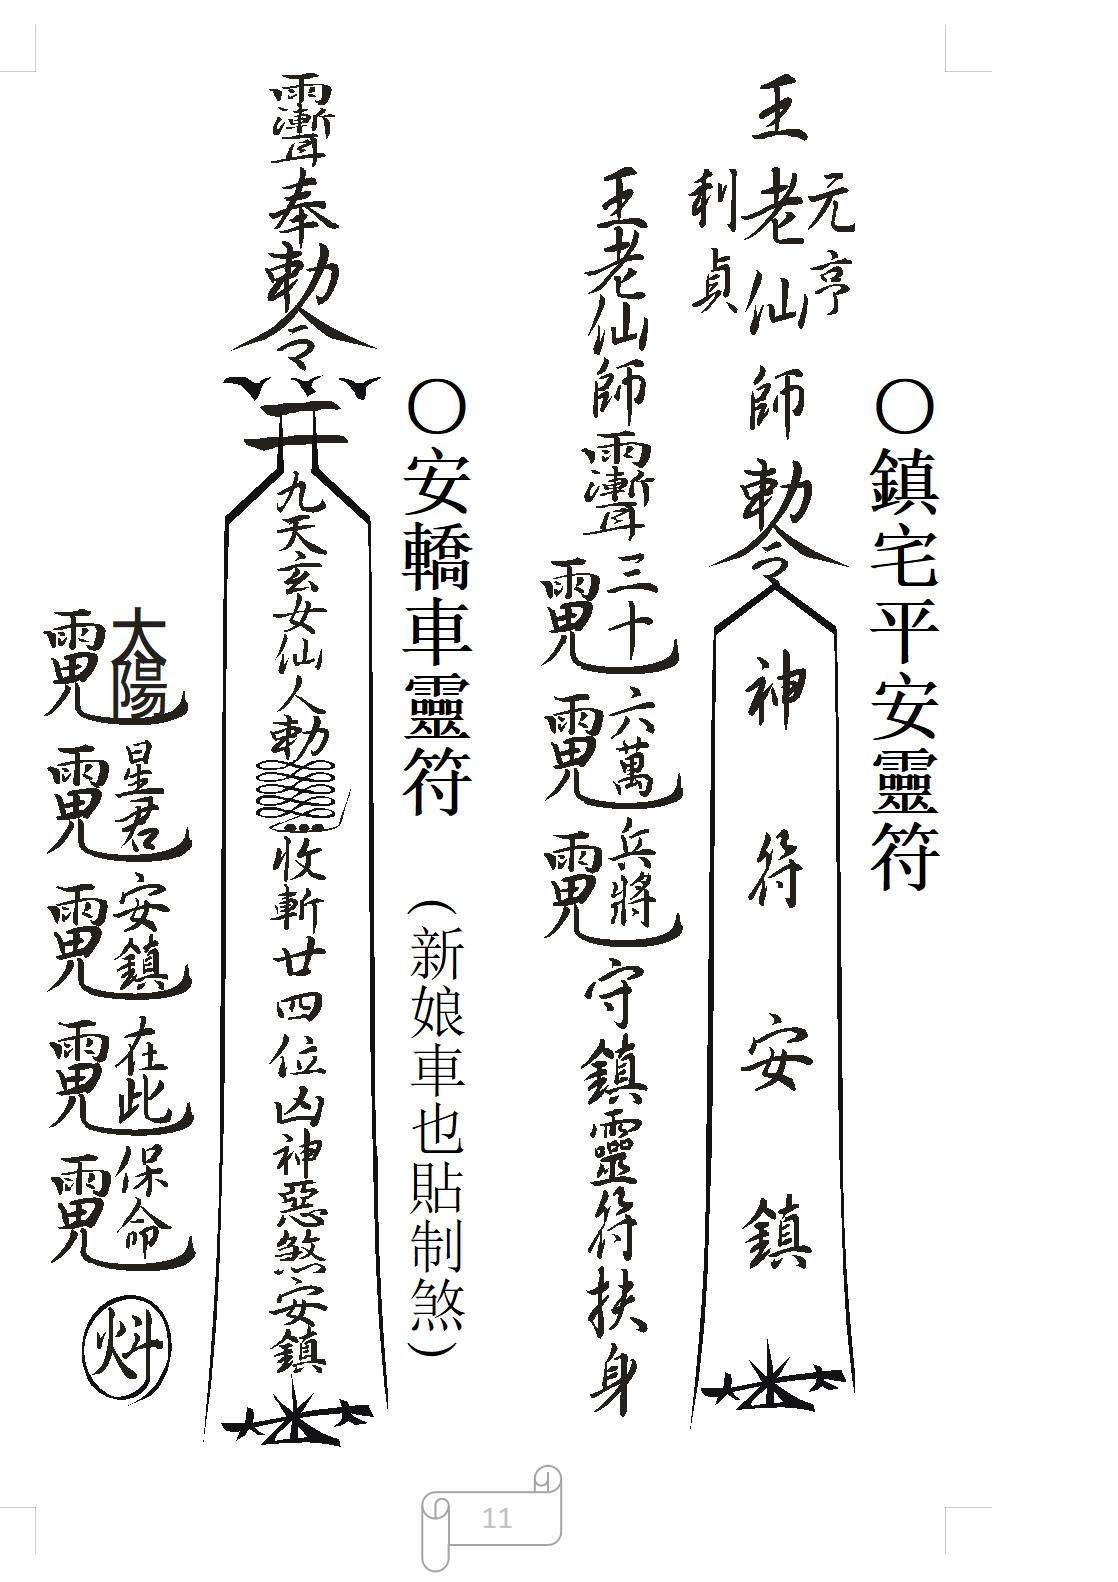 〇鎮宅平安靈符
元亨
王老仙師勅令
利貞
神符安鎮
王老仙師
三十六萬兵將
守鎮靈符扶身
〇安轎車靈符
(新娘車也貼制煞)
奉勅令
九天玄女仙人勅
收斬廿四位凶神惡煞安鎮
太陽星君安鎮在此保命
11